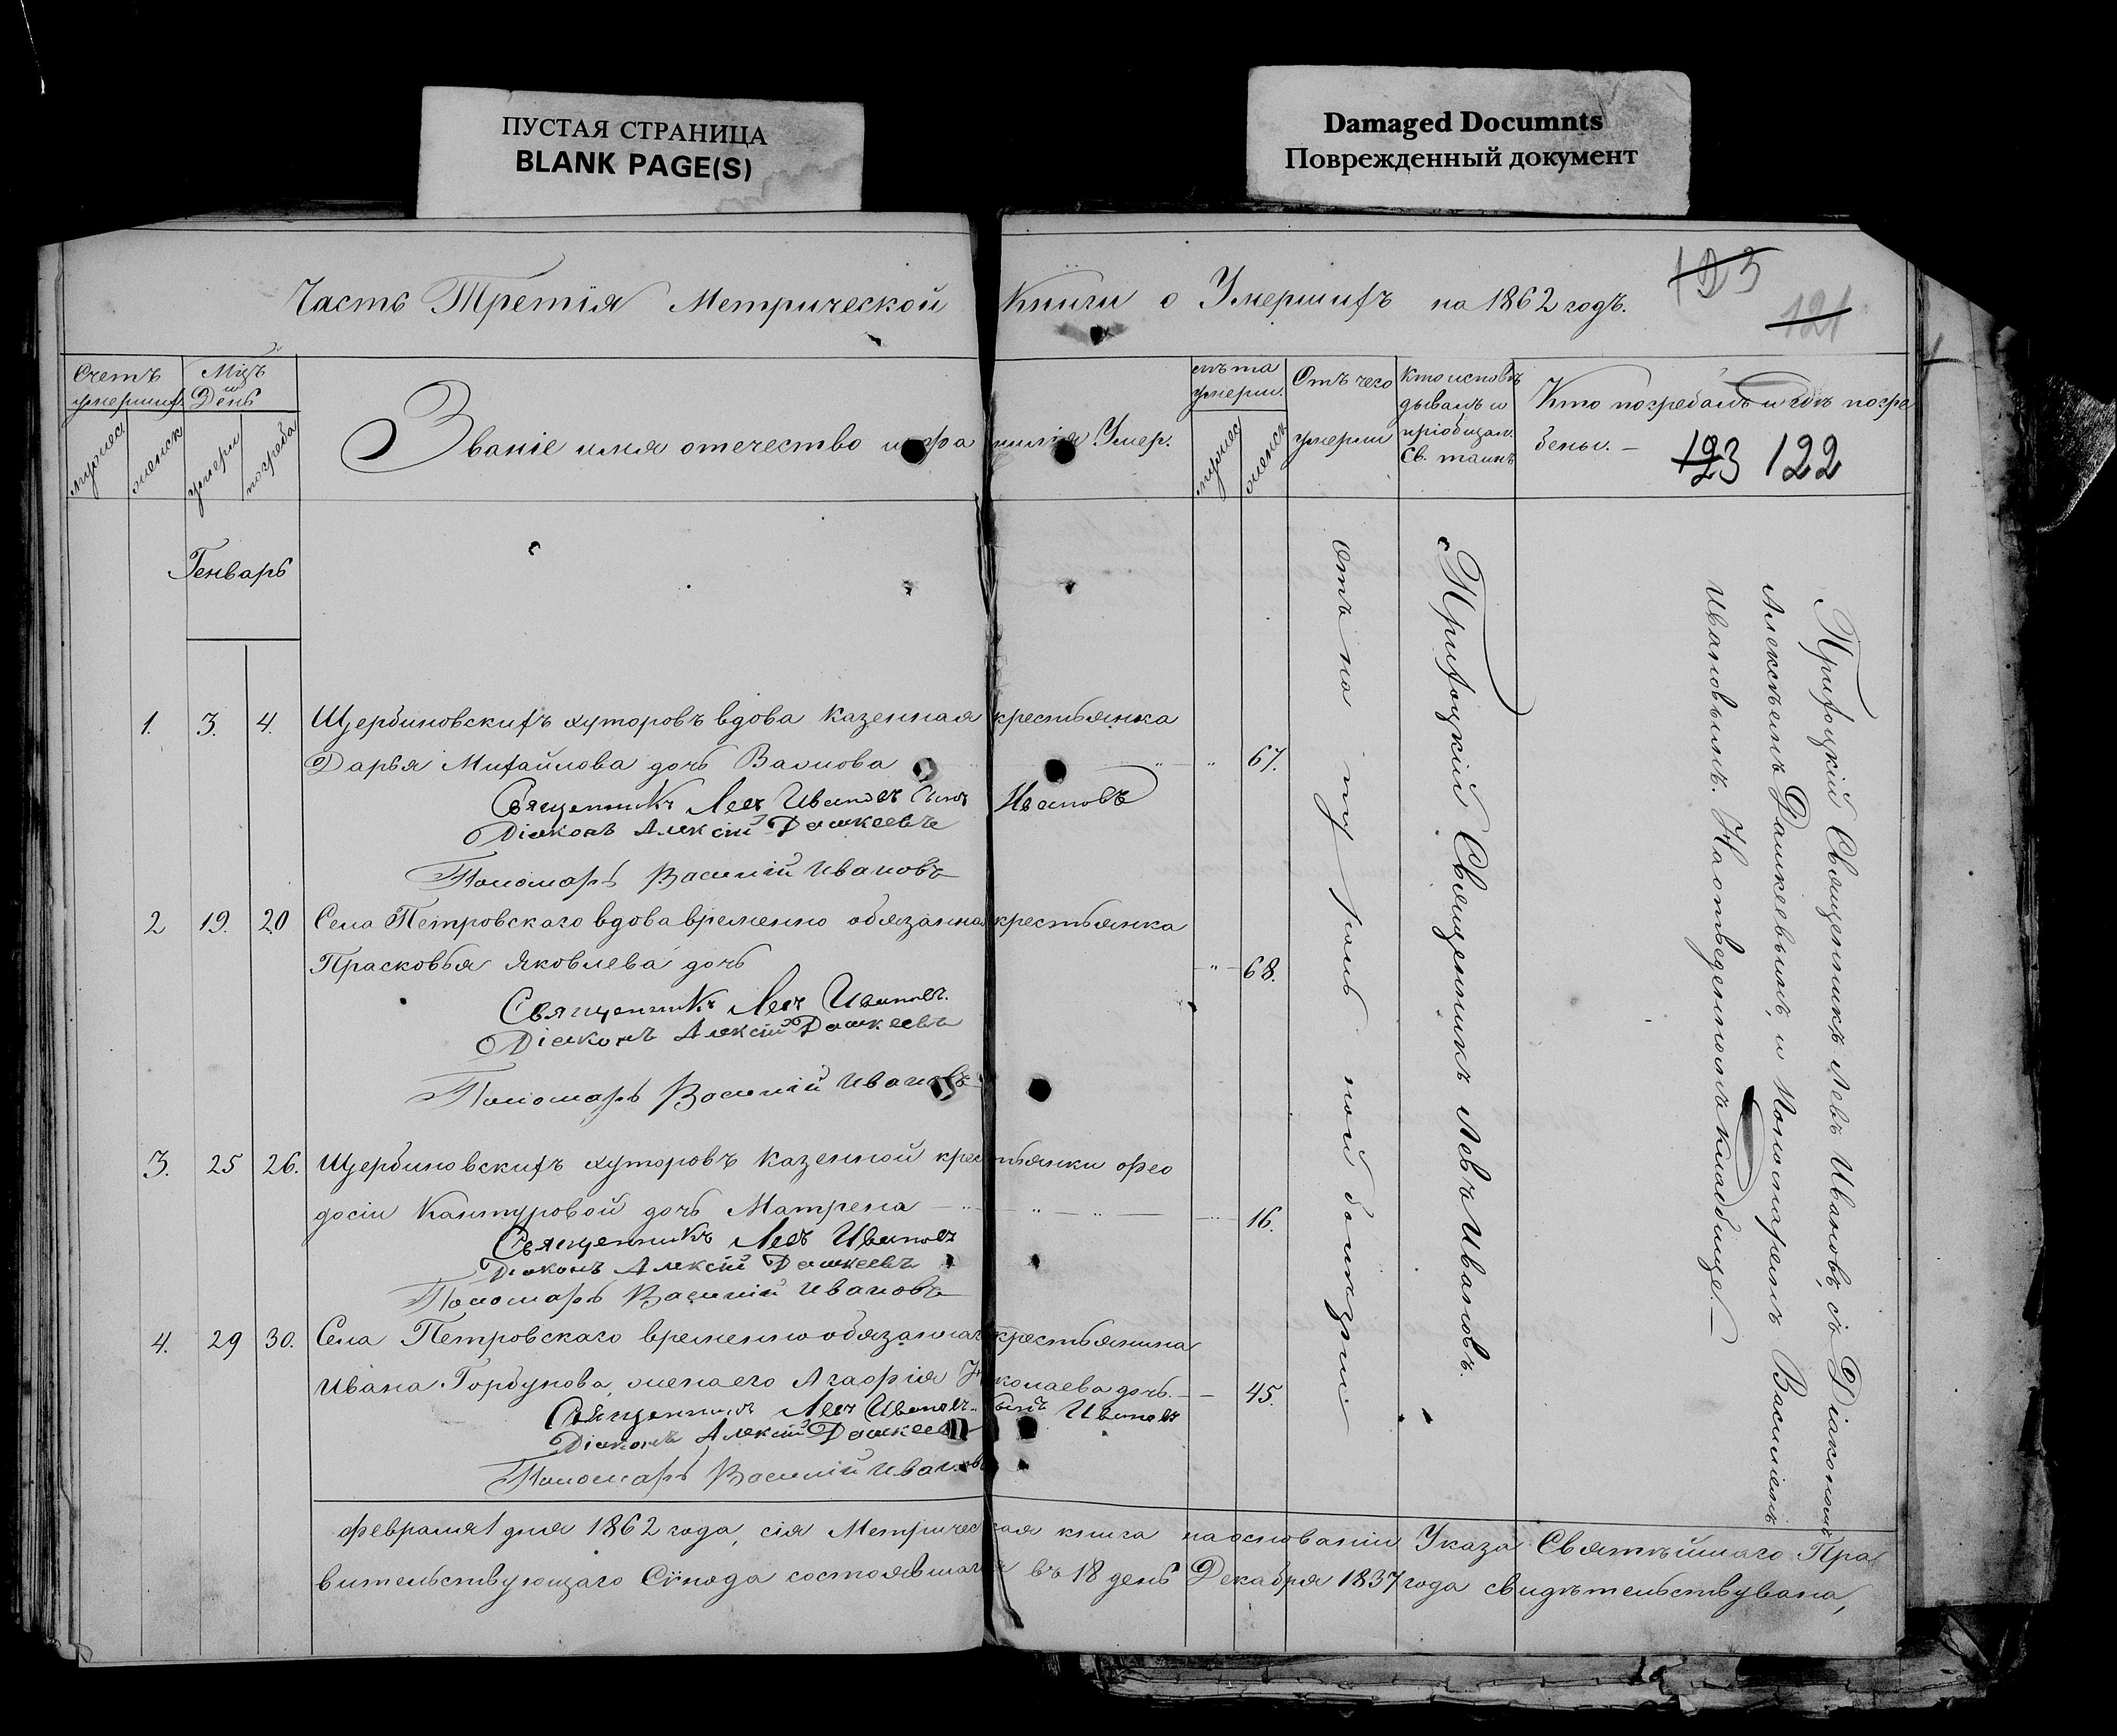 ПУСТАЯ СТРАНИЦА
BLANK PAGE(S)
Damaged Documnts
Поврежденный документ
Часть Третія Метрической Книги о Умершихъ на 1862 годъ.
123
121
Счетъ умершихъ
Мцъ и День
мужеск
женск
умерш
погреба
Званіе имя отечество и фамилія Умер.
лѣта умерш.
мужеск
женск
Отъ чего умерши
Кто исповѣдывалъ и пріобщал. Св. таинъ
Кто погребалъ и гдѣ погребены. —
123 122
Генварь
1. 3. 4. Щербиновскихъ хуторовъ вдова казенная крестьянка
Дарья Михайлова дочь 67.
Священникъ Левъ Ивановъ Сынъ Ивановъ
Діаконъ Алексій Дашкеевъ
Пономарь Василій Ивановъ
2 19. 20 Села Петровскаго вдова временно обязанная крестьянка
Прасковья Яковлева дочь 68.
Священникъ Левъ Ивановъ.
Діаконъ Алексій Дашкеевъ
Пономарь Василій Ивановъ
3. 25 26. Щербиновскихъ хуторовъ казенной крестьянки Фео
досіи Кантуровой дочь Матрена 16.
Священникъ Левъ Ивановъ
Діаконъ Алексій Дашкеевъ
Пономарь Василій Ивановъ
4. 29 30. Села Петровскаго временно обязаннаго крестьянина
Ивана Горбунова, жена его Агафія Николаева дочь. 45.
Священникъ Левъ Ивановъ Сынъ Ивановъ
Діаконъ Алексій Дашкеевъ
Пономарь Василій Ивановъ
Отъ натуральной болизни
Прихоцкій Священникъ Левъ Ивановъ.
Прихоцкій Священникъ Левъ Ивановъ, съ Діакономъ
Алексѣемъ Дашкеевымъ, и Пономаремъ Василіемъ
Ивановымъ. На отведенномъ кладбище —
Февраля 1 дня 1862 года, сія Метрическая книга на основаніи Указа Святѣйшаго Пра
вительствующаго Сѵнода состоявшагося въ 18 день Декабря 1837 года свидѣтельствувана,